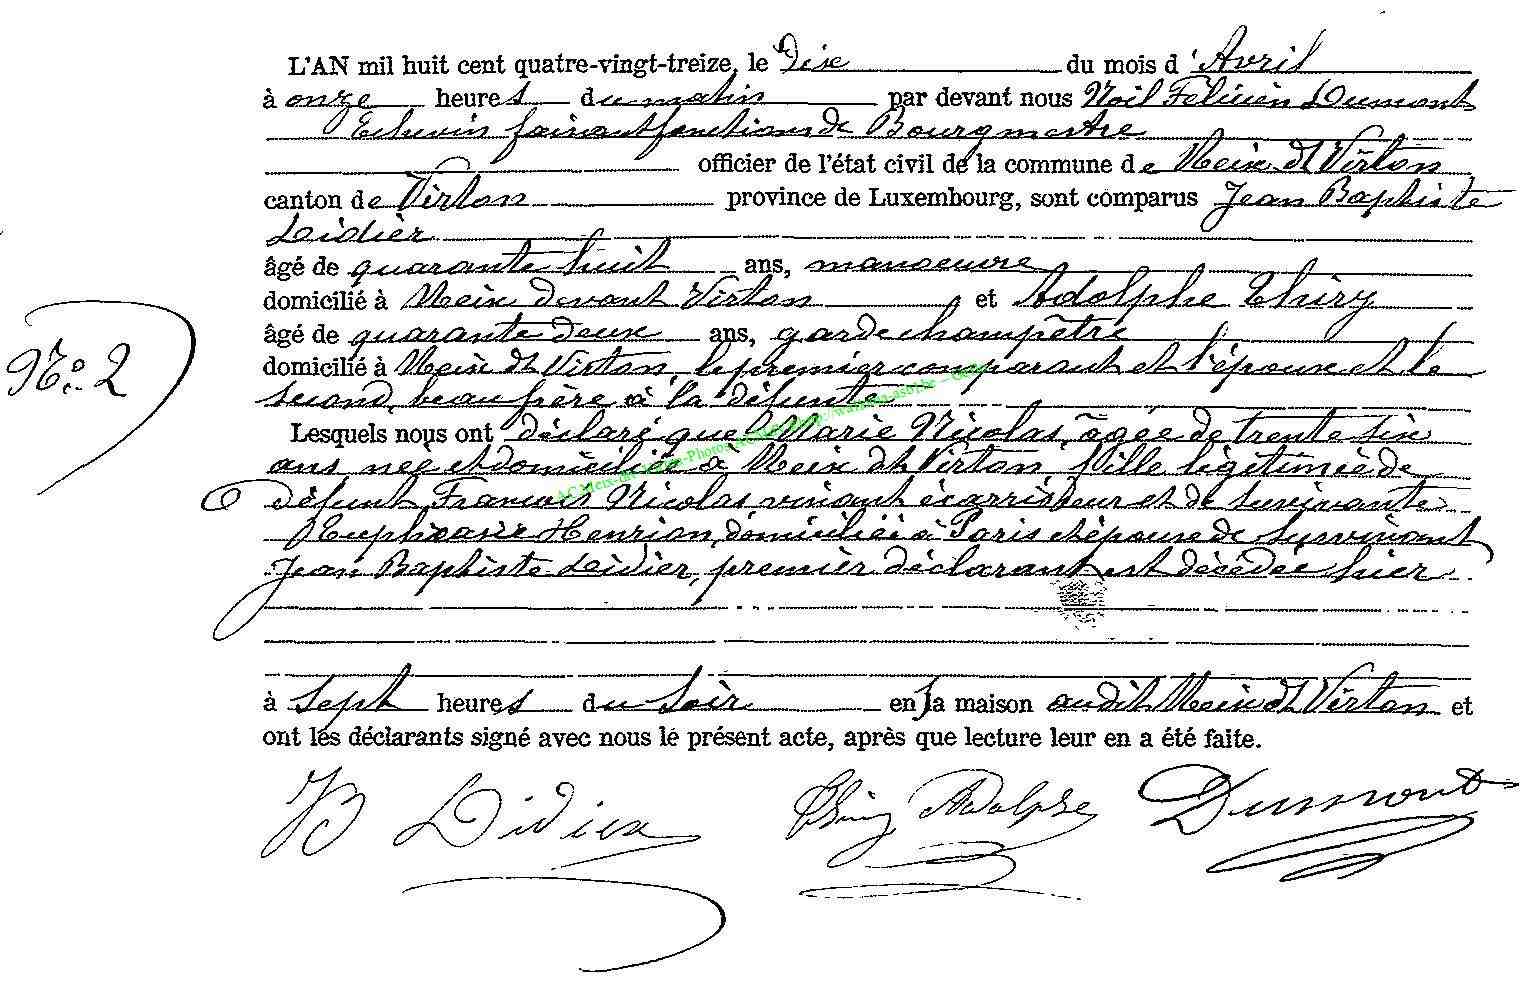 L'AN mil huit cent quatre-vingt-treize, le Dix du mois d'Avril
à onze heures du matin par devant nous Noël Félicien Dumont
Echevin faisant fonctions de Bourgmestre
officier de l'état civil de la commune de Meix dt Virton
canton de Virton province de Luxembourg, sont comparus Jean Baptiste
Didier
âgé de quarante huit ans, manoeuvre
domicilié à Meix devant Virton et Adolphe Thiry
âgé de quarante deux ans, garde champêtre
N° 2
domicilié à Meix dt Virton, le premier comparant et l'époux et le
second, beau frère à la défunte
Lesquels nous ont déclaré que Marie Nicolas, âgée de trente six
ans née et domiciliée à Meix dt Virton, fille légitimée de
défunt François Nicolas vivant écarrisseur et de survivante
Euphrasie Henrion, domiciliée à Paris et épouse de survivant
Jean Baptiste Didier, premier déclarant est décédée hier
à Sept heures du Soir en sa maison audit Meix dt Virton et
ont les déclarants signé avec nous le présent acte, après que lecture leur en a été faite.
JB Didier Thiry Adolphe Dumont